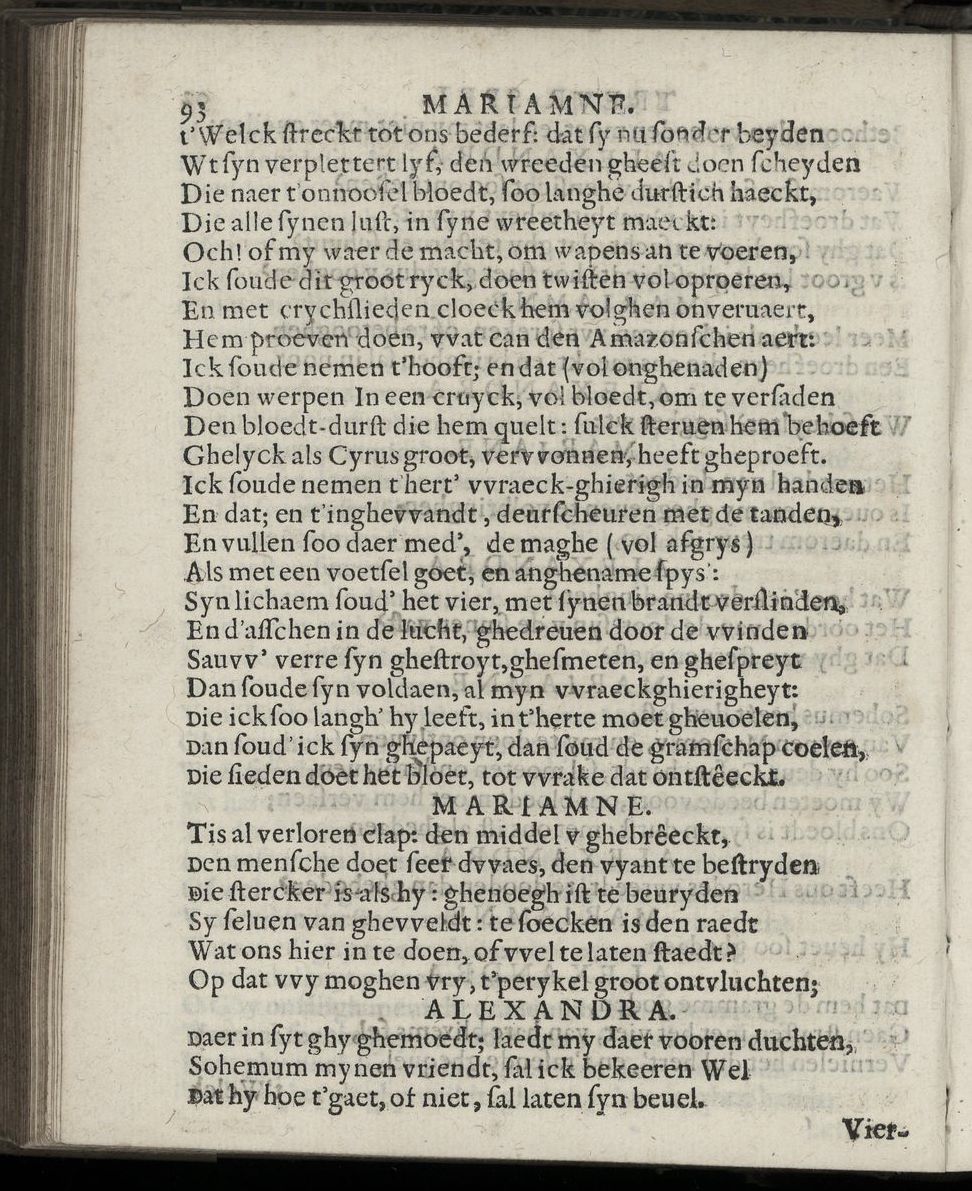 93
MARIAMNE.
t'Welck ſtreckt tot ons bederf: dat ſy nu ſonder beyden
Wt ſyn verplettert lyf, den wreeden gheeſt doen ſcheyden
Die naer t'onnooſel bloedt, ſoo langhe durſtich haeckt,
Die alle ſynen luſt, in ſyne wreetheyt maeckt:
Och! of my waer de macht, om wapens an te voeren,
Ick ſoude dit groot ryck, doen twiſten vol oproeren,
En met crychſlieden cloeck hem volghen onveruaert,
Hem proeven doen, vvat can den Amazonſchen aert:
Ick ſoude nemen t'hooft; en dat (vol onghenaden)
Doen werpen In een cruyck, vol bloedt, om te verſaden
Den bloedt-durſt die hem quelt: ſulck ſteruen hem behoeft
Ghelyck als Cyrus groot, vervvonnen, heeft gheproeft.
Ick ſoude nemen t'hert' vvraeck-ghierigh in myn handen
En dat; en t'inghevvandt, deurſcheuren met de tanden,
En vullen ſoo daer med', de maghe (vol afgrys)
Als met een voetſel goet, en anghename ſpys:
Syn lichaem ſoud' het vier, met ſynen brandt verſlinden,
En d'aſſchen in de lucht, ghedreuen door de vvinden
Sauvv' verre ſyn gheſtroyt, gheſmeten, en gheſpreyt
Dan ſoude ſyn voldaen, al myn vvraeckghierigheyt:
Die ick ſoo langh' hy leeft, in t'herte moet gheuoelen,
Dan ſoud' ick ſyn ghepaeyt, dan ſoud de gramſchap coelen,
Die ſieden doet het bloet, tot vvrake dat ontſtêeckt.
MARIAMNE.
Tis al verloren clap: den middel v ghebrêeckt,
Den menſche doet ſeer dvvaes, den vyant te beſtryden
Die ſtercker is als hy: ghenoegh iſt te beuryden
Sy ſeluen van ghevveldt: te ſoecken is den raedt
Wat ons hier in te doen, of vvel te laten ſtaedt?
Op dat vvy moghen vry, t'perykel groot ontvluchten;
ALEXANDRA.
Daer in ſyt ghy ghemoedt; laedt my daer vooren duchten,
Sohemum mynen vriendt, ſal ick bekeeren Wel
Dat hy hoe t'gaet, of niet, ſal laten ſyn beuel.
Vier-